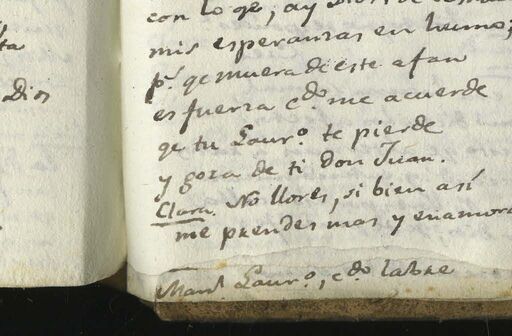 ta
Dios
con lo qe, ay Dios de
mis esperanzas en humo;
pr. qe muera de este afan
es fuerza cdo. me acuerde
qe tu Laurº. te pierde
y goza de ti Don Juan.
Clara No llores, si bien así
me prendes mas y enamora
Laurº., cdo. labre